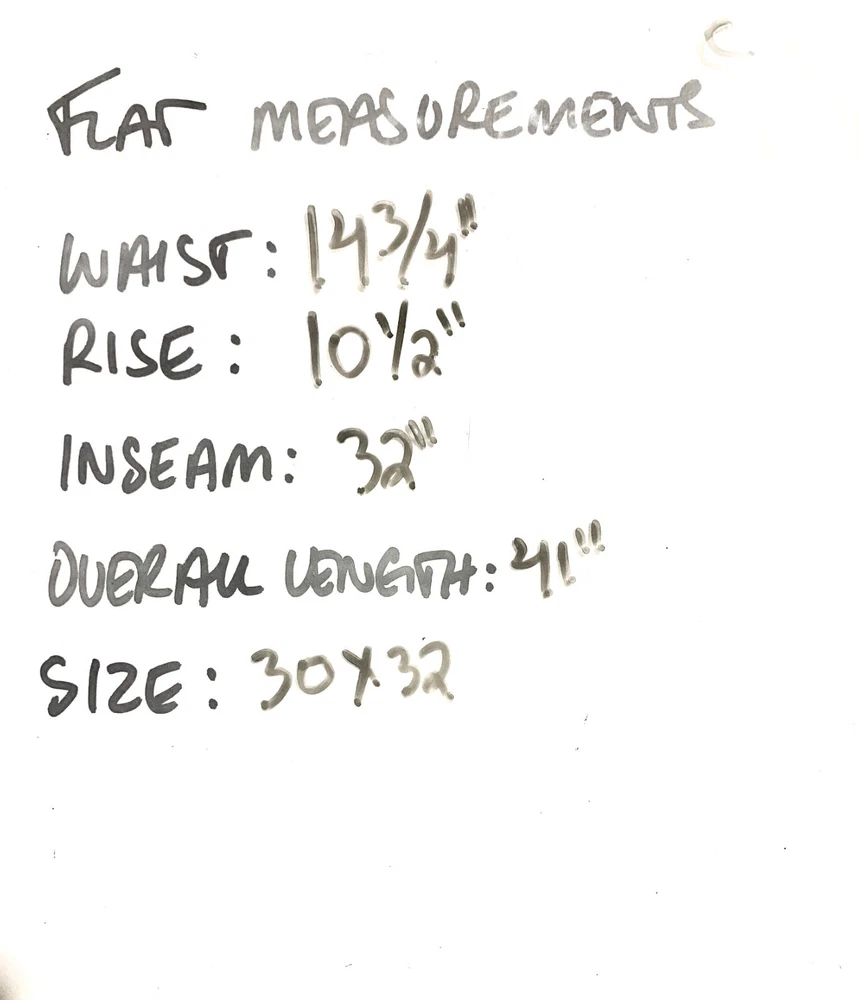 FLAT MEASUREMENTS
WAIST: 14 3/4"
RISE: 10 1/2"
INSEAM: 32"
OVERALL LENGTH: 41"
SIZE: 30X32